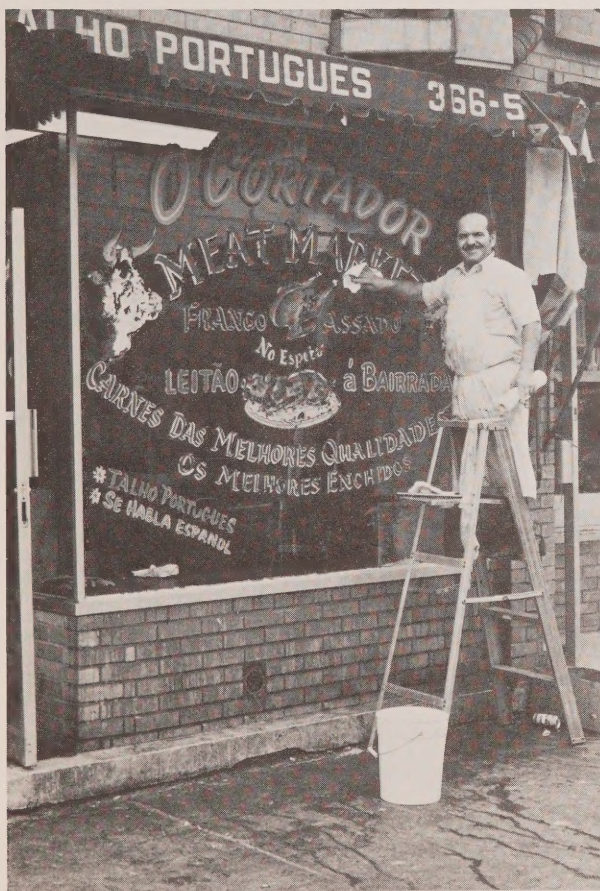 ALHO PORTUGUES 366-5
O CORTADOR
MEAT MARKET
FRANGO ASSADO
No Espeto
LEITÃO á BAIRRADA
CARNES DAS MELHORES QUALIDADES
OS MELHORES ENCHIDOS
*TALHO PORTUGUES
*SE HABLA ESPANOL